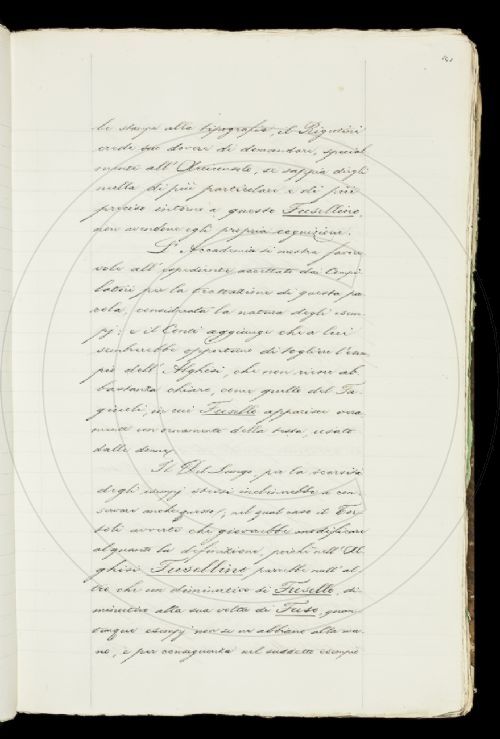 le stampe alla tipografia, il Rigutini
crede suo dovere di domandare, special
mente all' Arciconsolo, se sappia dirgli
nulla di più particolare e di più
preciso intorno a questo Fusellino,
non avendone egli propria cognizione.
L'Accademia si mostra favore
vole all' espediente accettato dai Compi
latori per la trattazione di questa pa
rola, considerata la natura degli esem
pj: e il Conti aggiunge che a lui
sembrerebbe opportuno di togliere l'esem
pio dell' Alghisi, che non riesce ab
bastanza chiaro, come quello del
in cui Fusello apparisce vera
mente un ornamento della testa, usato
dalle donne.
Il Del Lungo per la scarsità
degli esempj stessi inclinerebbe a con
servare anche questo; nel qual caso il Tor
toli avverte che gioverebbe modificare
alquanto la definizione, poichè nell' Al
ghisi Fusellino parrebbe null' al
tro che un diminutivo di Fusello, di
minutivo alla sua volta di Fuso, quan
tunque esempj non se ne abbiano alla ma
no, e per conseguenza nel suddetto esempio